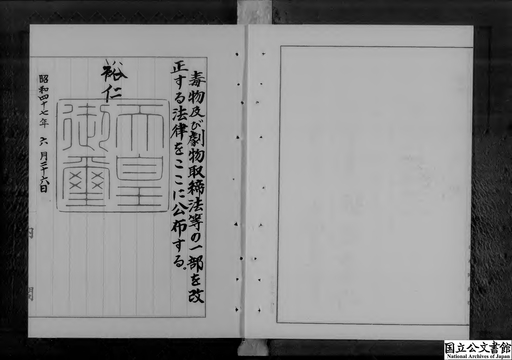 毒物及び劇物取締法等の一部を改
正する法律をここに公布する。
裕仁
天皇
御璽
昭和四十七年 六月二十六日
内閣
国立公文書館
National Archives of Japan